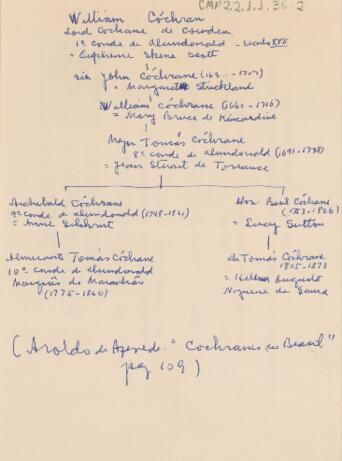 CMP 2.2.1.1.36-2
William Cóchran
Lord Cochrane de Cowden,
1º conde de Dundonald - seculo XVII
= Eupheme Skene Scott
Sir John Cóchrane (16
= Margaret Strickland
William Cochrane (1660-1716)
= Mary Bruce de Kincardine
Major Tomás Cóchrane
8º conde de Dundonald (1691-1778)
= Jean Stuart de Torrance
Archibald Cóchrane
9º conde de Dundonald (1748-1831)
= Anne Gilchrist
Hon. Basil Cochrane
(1753-1826)
= Lucy Sutton
Almirante Tomás Cóchrane
10º conde de Dundonald
Marquês do Maranhão
(1775-1860)
Dr. Tomás Cochrane
1805-1873
= Augusto
Nogueira da Gama
(Aroldo de Azevedo "Cochranes do Brasil"
pag 109)